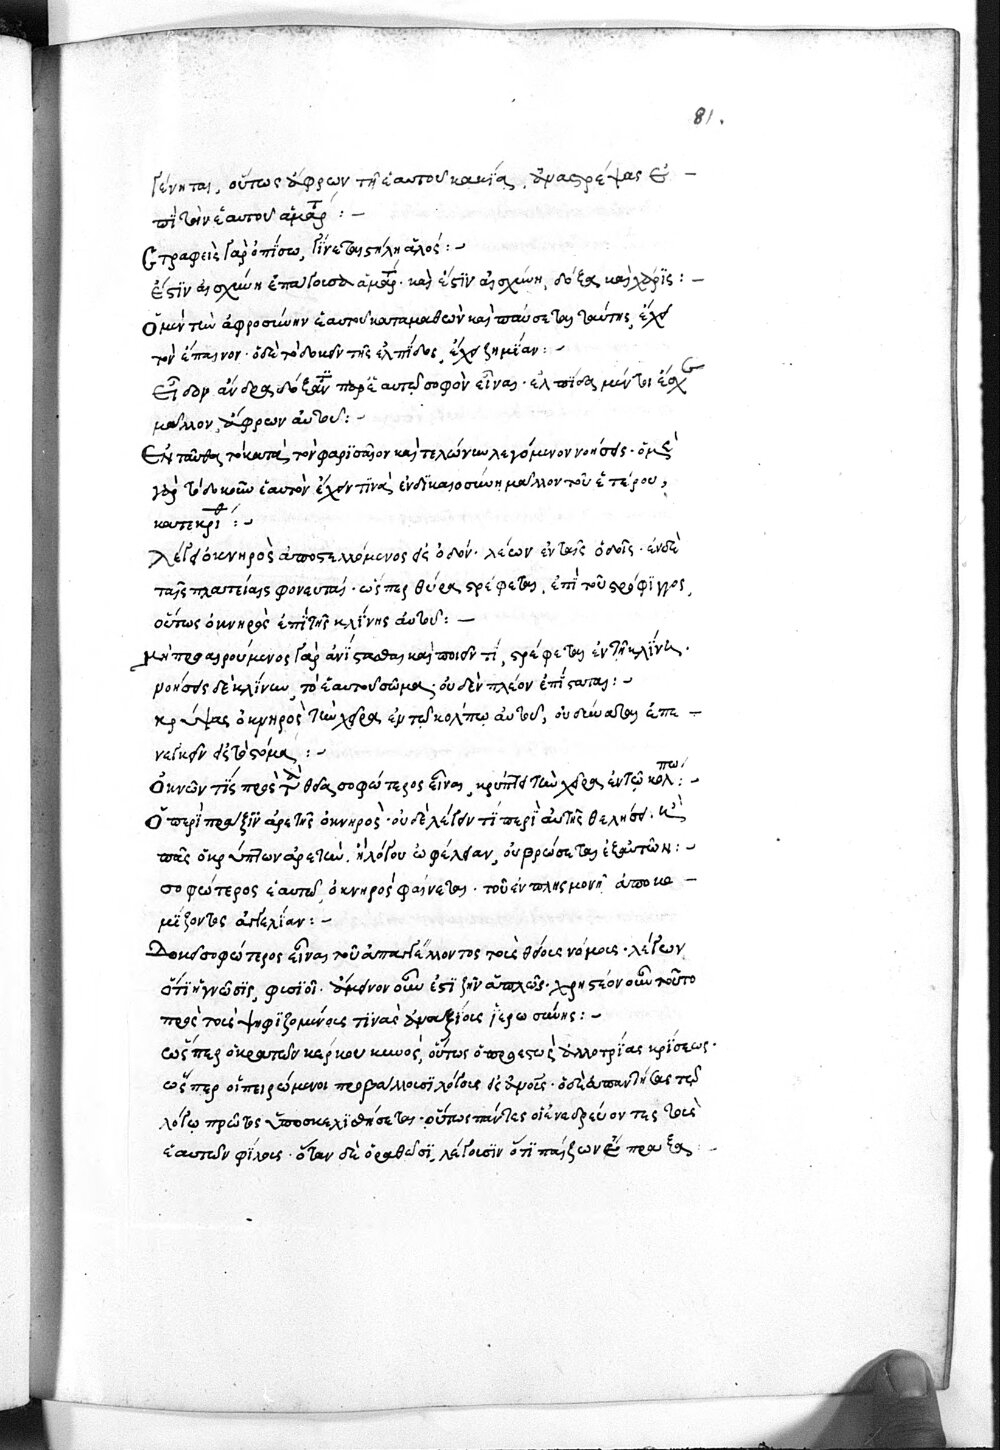 81.
γένηται, οὕτως ἄφρων τῇ ἑαυτοῦ κακίᾳ, ἀναστρέψας ἐ
πὶ τὴν ἑαυτοῦ ἁμαρτ :-
Στραφεὶς γὰρ ὀπίσω, γίνεται στήλη ἁλός :-
ἔστιν αἰσχύνη ἐπάγουσα ἁμαρτ · καὶ ἔστιν αἰσχύνη, δόξα καὶ χάρις : -
Ὁ μὲν τὴν ἀφροσύνην ἑαυτοῦ καταμαθὼν καὶ παύσεται ταύτης, ἔχει
τὸν ἔπαινον · ὁ δὲ τὸ δοκεῖν τῆς ἐλπίδος, ἔχει ζημίαν : -
Εἶδον ἄνδρα δόξαντ παρ' ἑαυτῷ σοφὸν εἶναι · ἐλπίδα μέν τοι ἔσχε
μᾶλλον ἄφρων αὐτοῦ : -
Ἐνταῦθα τὸ κατὰ τὸν φαρισαῖον καὶ τελώνην λεγόμενον νοήσεις · ὁ μὲν
γὰρ τὸ δοκεῖν ἑαυτὸν ἔχειν τινὰ ἐν δικαιοσύνῃ μᾶλλον τοῦ ἑτέρου,
κατεκρίθ : -
λέγει ὀκνηρὸς ἀποστελλόμενος εἰς ὁδόν · λέων ἐν ταῖς ὁδοῖς · ἐν δὲ
ταῖς πλατείαις φονευταί · ὥσπερ θύρα στρέφεται ἐπὶ τοῦ στρόφιγγος,
οὕτως ὀκνηρὸς ἐπὶ τῆς κλίνης αὐτοῦ : -
μὴ προαιρούμενος γὰρ ἀνίστασθαι καὶ ποιεῖν τί, στρέφεται ἐν τῇ κλίνῃ ·
νοήσεις δὲ κλίνην, τὸ ἑαυτοῦ σῶμα · οὐδὲν πλέον ἐπίσταται : -
κρύψας ὀκνηρὸς τὴν χεῖρα ἐν τῷ κόλπῳ αὐτοῦ, οὐ δύναται ἐπε
νεγκεῖν εἰς τὸ στόμα : -
Ὀκνῶν τίς πρὸς τὰ θεῖα σοφώτερος εἶναι, κρύπτει τὴν χεῖρα ἐν τῷ κόλπῳ : -
Ὁ περὶ πρᾶξιν ἀρετῆς ὀκνηρὸς · οὐδὲ λέγειν τί περὶ αὐτῆς θελήσει · καὶ
πᾶς ὁ κρύπτων ἀρετὴν, ἢ λόγου ὠφέλειαν, οὐ βρώσεται ἐξ αὐτῶν : -
σοφώτερος ἑαυτῷ ὀκνηρὸς φαίνεται · τοῦ ἐν πλησμονῇ ἀποκο
μίζοντος ἀγγελίαν : -
Δοκεῖ σοφώτερος εἶναι τοῦ ἀπαγγέλλοντος τοὺς θείους νόμους · λέγων
ὅτι ἡ γνῶσις, φυσιοῖ · ἄμεινον οὖν ἐστι ζῆν ἁπλῶς · χρηστέον οὖν τοῦτο
πρὸς τοὺς ψηφιζομένους τινὰς ἀναξίους ἱερωσύνης : -
ὥσπερ ὁ κρατῶν κέρκου κυνὸς, οὕτως ὁ προεστὼς ἀλλοτρίας κρίσεως ·
ὥσπερ οἱ πειρώμενοι προβάλλουσι λόγους εἰς ἀνοὺς · ὁ δὲ ἀπαντήσας τῷ
λόγῳ πρῶτος ὑποσκελισθήσεται · οὕτως πάντες οἱ ἐνεδρεύοντες τοὺς
ἑαυτῶν φίλους · ὅταν δὲ ὁραθῶσι, λέγουσιν ὅτι παίζων ἔπραξα : -